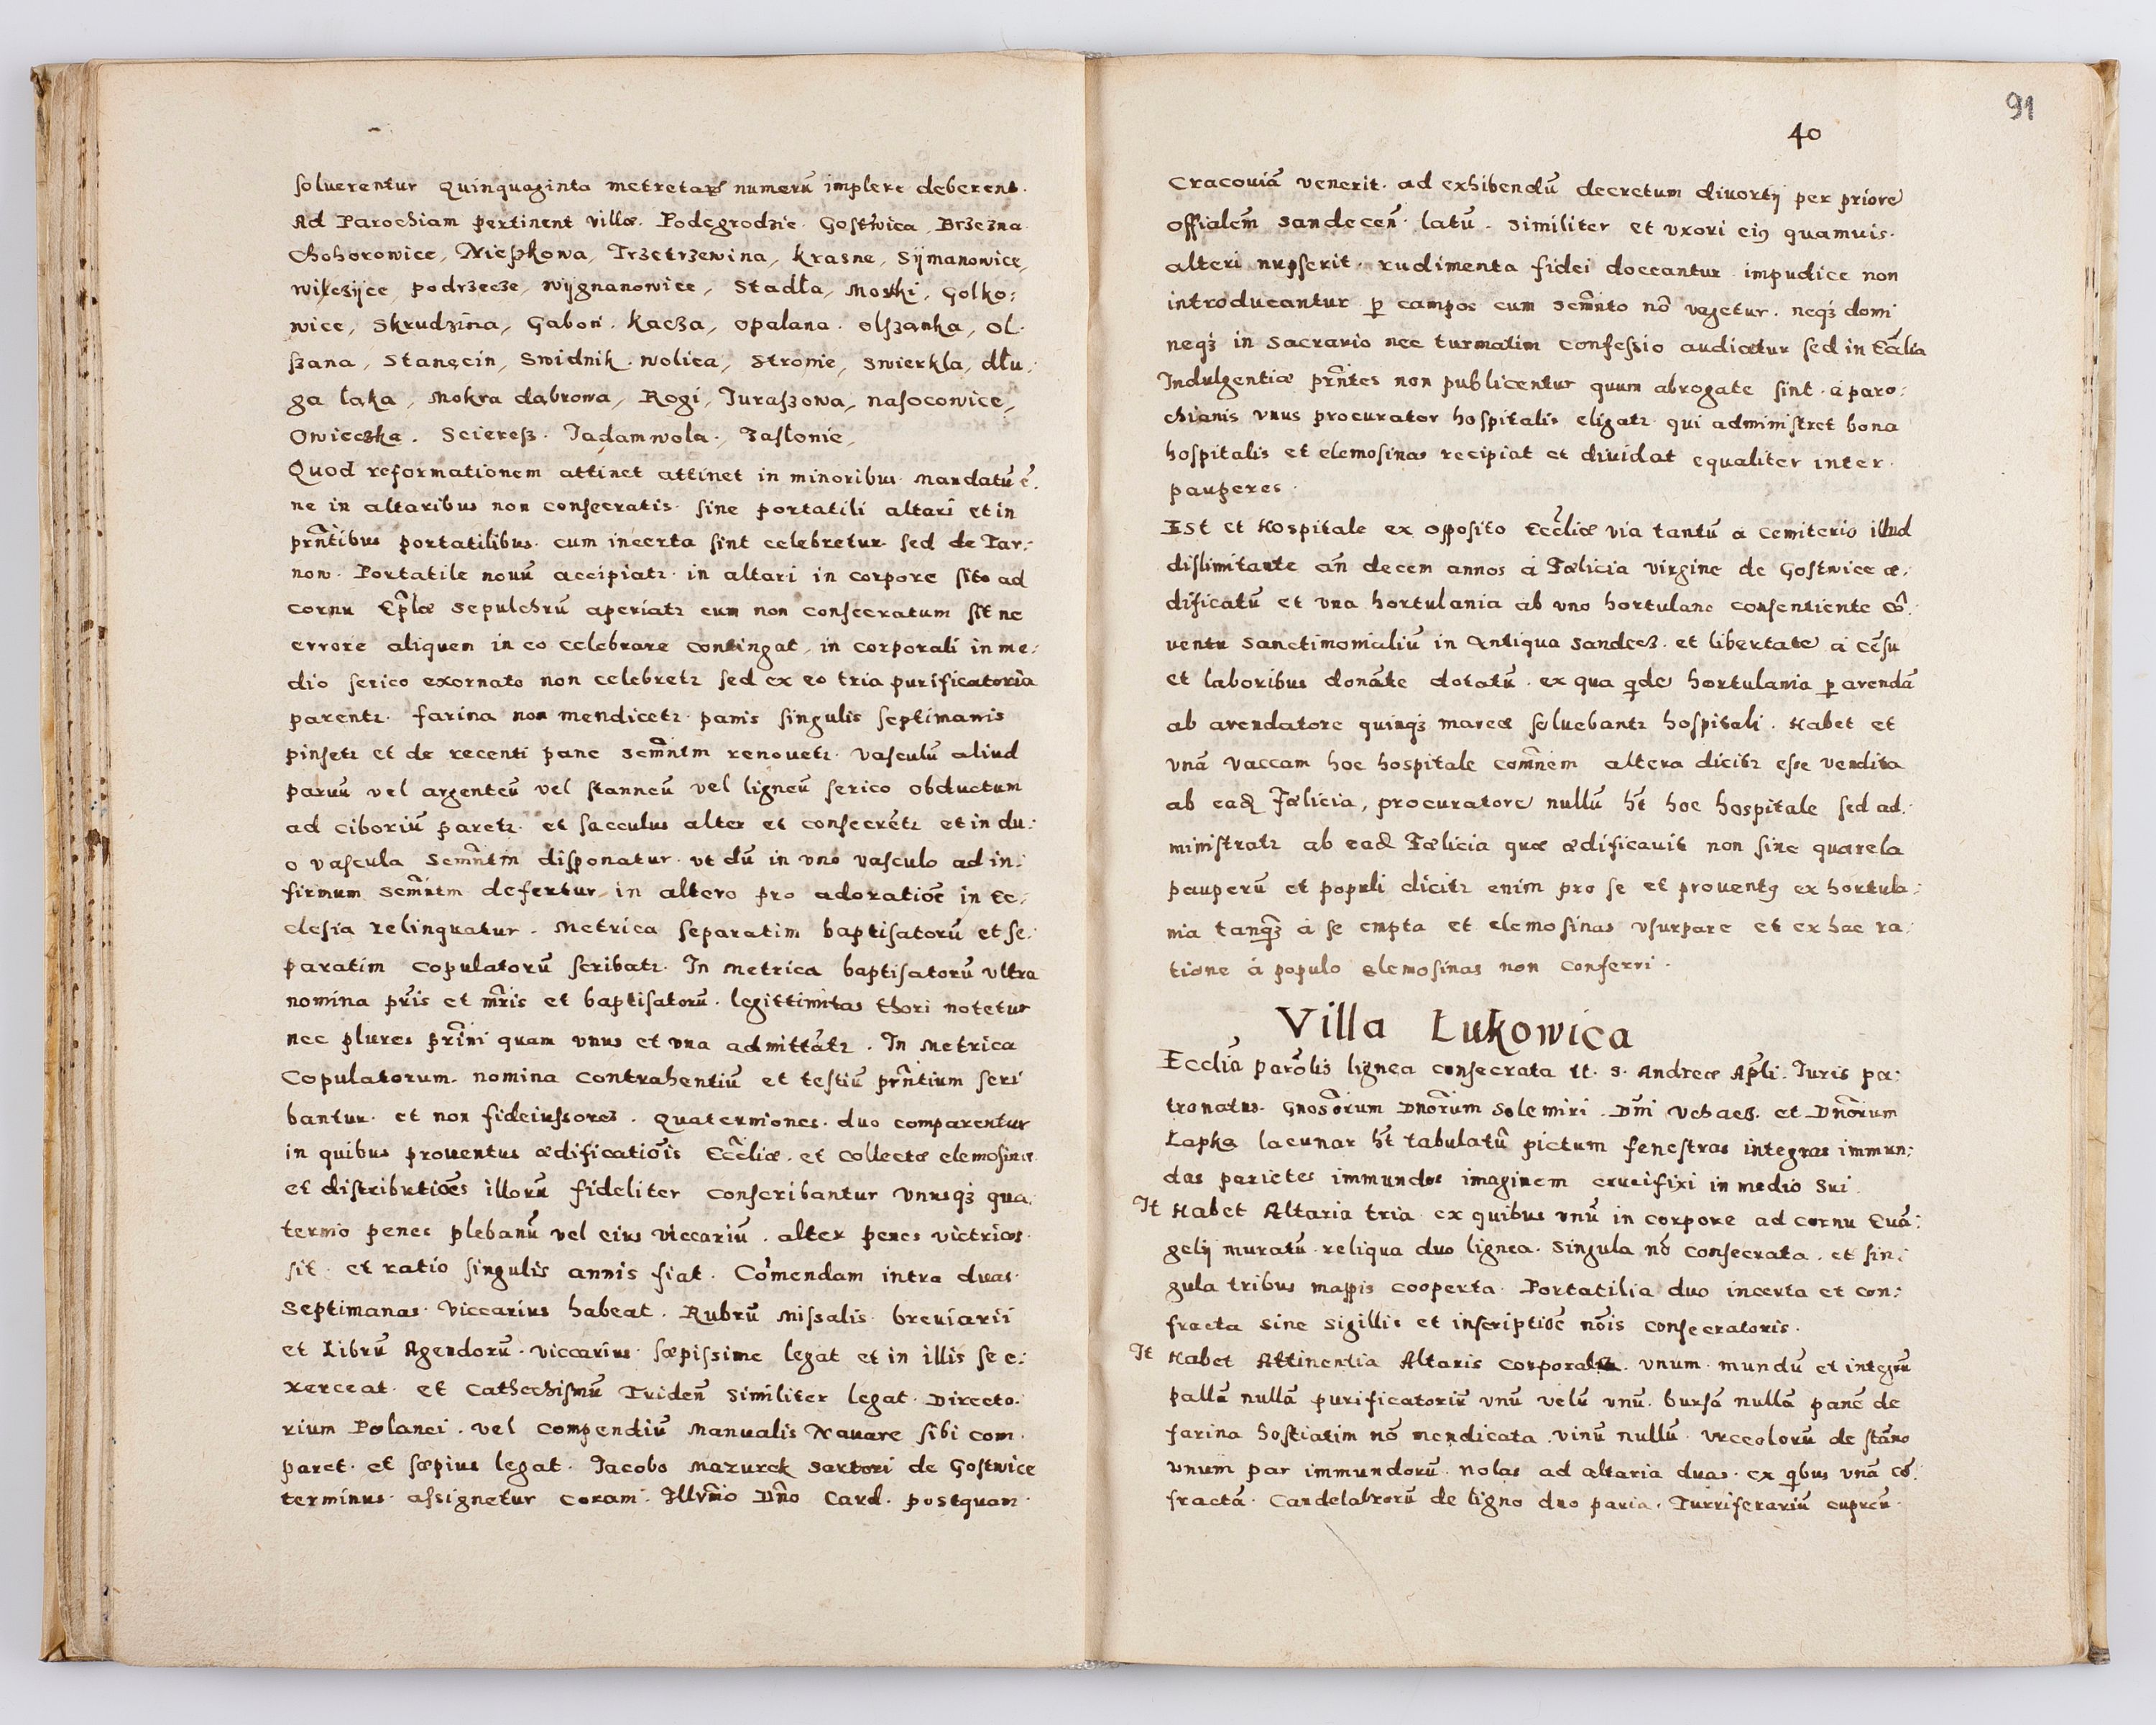 soluerentur Quinquaginta metretarũ numerũ implere deberent.
Ad Parochiam pertinent villæ. Podegrodzie. Gostwica, Brzezna
Chohorowice, Nieszkowa, Trzetrzewina, krasne, Sÿmanowice,
wilczÿce, podrzecze, wÿgnanowice, Stadła, Mostki, Golko:
wice, Skrudzina, Gabon. kacza, opalana. olszanka, ol.
szana, Stanęcin, Swidnik. wolica, Stronie, Swierkla, dłu:
ga łąka, Mokra dąbrowa, Rogi, Juraszowa, nasocowice,
Owieczka. Scieresz. Jadamwola. Jastonie,
Quod reformationem attinet attinet in minoribus. Mandatũ ẽ.
ne in altaribus non consecratis. sine portatili altari et in
prñtibus portatilibus. cum incerta sint celebretur. sed de Tar:
now. Portatile nouũ accipiatr. in altari in corpore sito ad
cornu Ep̃læ sepulchrũ aperiatr cum non consecratum sit ne
errore aliquem in eo celebrare contingat, in corporali in me:
dio serico exornato non celebretr sed ex eo tria purificatoria
parentr. farina non mendicetr. panis singulis septimanis
pinsetr et de recenti pane Semñtm renouetr. Vasculũ aliud
paruũ vel argenteũ vel stanneũ vel ligneũ serico obductum
ad ciboriũ paretr. et sacculus alter et consecrẽtr et in du:
o vascula Semñtm disponatur. vt dũ in vno vasculo ad in:
firmum Semñtm defertur, in altero pro adoratiõe in Ec:
clesia relinquatur. Metrica separatim baptisatorũ et se:
paratim copulatorũ scribatr. In Metrica baptisatorũ vltra
nomina pr̃is et mr̃is et baptisatorũ. legittimitas thori notetur
nec plures pr̃ini quam vnus et vna admittãtr. In Metrica
Copulatorum. nomina contrahentiũ et testiũ prñtium scri
bantur. et non fideiussores. Quaterniones. duo comparentur
in quibus prouentus ædificatiõis Eccl̃iæ. et collectæ elemosinæ
et distributiões illorũ fideliter conscribantur vnusqꝫ qua.
ternio penes plebanũ vel eius viccariũ. alter penes victrices.
sit. et ratio singulis annis fiat. Com̃endam intra duas.
Septimanas. Viccarius habeat. Rubrũ Missalis. breuiarii
et Librũ Agendorũ. viccarius. sæpissime legat et in illis se e:
xerceat. et Cathechismũ Tridẽn similiter legat. Directo.
rium Polanci. vel compendiũ Manualis Nauare sibi com.
paret. et sæpius legat. Jacobo Mazurek Sartori de Gostwice
terminus. assignetur coram. Illrm̃o Dñо Card. postquam.
91
40
Cracouiã venerit. ad exhibendũ decretum diuortij per priore
offialem̃ sandecen̄. latũ. similiter et vxori eiꝰ quamuis.
alteri nupserit. rudimenta fidei doceantur. impudice non
introducantur ꝑ campos cum semñto nõ vagetur. neqꝫ domi
neqꝫ in sacrario nec turmatim confessio audiatur sed in Eccl̃ia
Indulgentiæ prñtes non publicentur quum abrogate sint. à paro:
chianis vnus procurator hospitalis eligatr qui administret bona
hospitalis et elemosinas recipiat et diuidat equaliter inter.
pauperes.
Est et Hospitale ex opposito Eccl̃iæ via tantũ a Cemiterio illud
dislimitante añ decem annos à Fælicia virgine de Gostwice æ.
dificatũ et vna hortulania ab vno hortulano consentiente cõ.
uentu Sanctimonialiũ in Antiqua Sandecz. et libertate à cẽsu
et laboribus donãte dotatũ. ex qua qͥde hortulania ꝑ arendã
ab arendatore quinqꝫ marcæ soluebantr hospitali. Habet et
vnã vaccam hoc hospitale comñem altera dicitr esse vendita
ab eadꝫ Fælicia, procuratore nullũ ht̃ hoc hospitale sed ad.
ministratr ab eadꝫ Fælicia quæ ædificauit non sine quærela
pauperũ et populi dicitr enim pro se et prouentꝰ ex hortula:
nia tanqꝫ à se empta et elemosinas vsurpare et ex hac ra:
tione à populo elemosinas non conferri.
Villa Lukowica
Eccl̃ia parõlis lignea consecrata tt. S. Andreæ Ap̃li. Juris pa:
tronatus. Gnosõrum Dnõrum Solemiri. Dñi Vchacz. et Dnõrum
Łapka lacunar ht̃ tabulatũ pictum fenestras integras immun:
das parietes immundos imaginem crucifixi in medio sui.
It Habet Altaria tria. ex quibus vnũ in corpore ad cornu Euã:
gelij muratũ. reliqua duo lignea. Singula nõ consecrata. et sin:
gula tribus mappis cooperta. Portatilia duo incerta et con:
fracta sine sigillis et inscriptiõe nõis consecratoris.
It Habet Attinentia Altaris corporalia. vnum. mundũ et integrũ
pallã nullã purificatoriũ vnũ velũ vnũ. bursã nullã panẽ de
farina hostiatim nõ mendicata. vinũ nullũ. vrceolorũ de stãno
vnum par immundorũ. nolas ad altaria duas. ex qͥbus vnã cõ:
fractã. Candelabrorũ de ligno duo paria. Turriferariũ cupreũ.